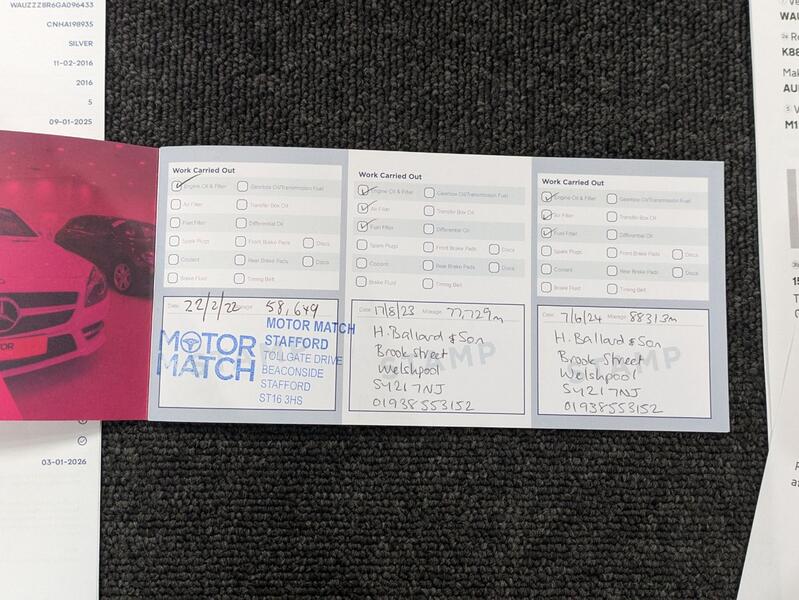 WAUZZZ8R6GA096433
CNHA198935
SILVER
11-02-2016
2016
5
09-01-2025
03-01-2026
Work Carried Out
Engine Oil & Filter
Gearbox Oil/Transmission Fuel
Air Filter
Transfer Box Oil
Fuel Filter
Differential Oil
Spark Plugs
Front Brake Pads
Discs
Coolant
Rear Brake Pads
Discs
Brake Fluid
Timing Belt
Date: 22/2/22 Mileage: 58,649
MOTOR
MATCH
MOTOR MATCH
STAFFORD
TOLLGATE DRIVE
BEACONSIDE
STAFFORD
ST16 3HS
Work Carried Out
Engine Oil & Filter
Gearbox Oil/Transmission Fuel
Air Filter
Transfer Box Oil
Fuel Filter
Differential Oil
Spark Plugs
Front Brake Pads
Discs
Coolant
Rear Brake Pads
Discs
Brake Fluid
Timing Belt
Date: 17/8/23 Mileage: 77,729m
STAMP
H. Ballard & Son
Brook Street
Welshpool
SY21 7NJ
01938553152
Work Carried Out
Engine Oil & Filter
Gearbox Oil/Transmission Fuel
Air Filter
Transfer Box Oil
Fuel Filter
Differential Oil
Spark Plugs
Front Brake Pads
Discs
Coolant
Rear Brake Pads
Discs
Brake Fluid
Timing Belt
Date: 7/6/24 Mileage: 88313m
STAMP
H. Ballard & Son
Brook Street
Welshpool
SY21 7NJ
01938553152
WAU
K88
Mak
AU
M1